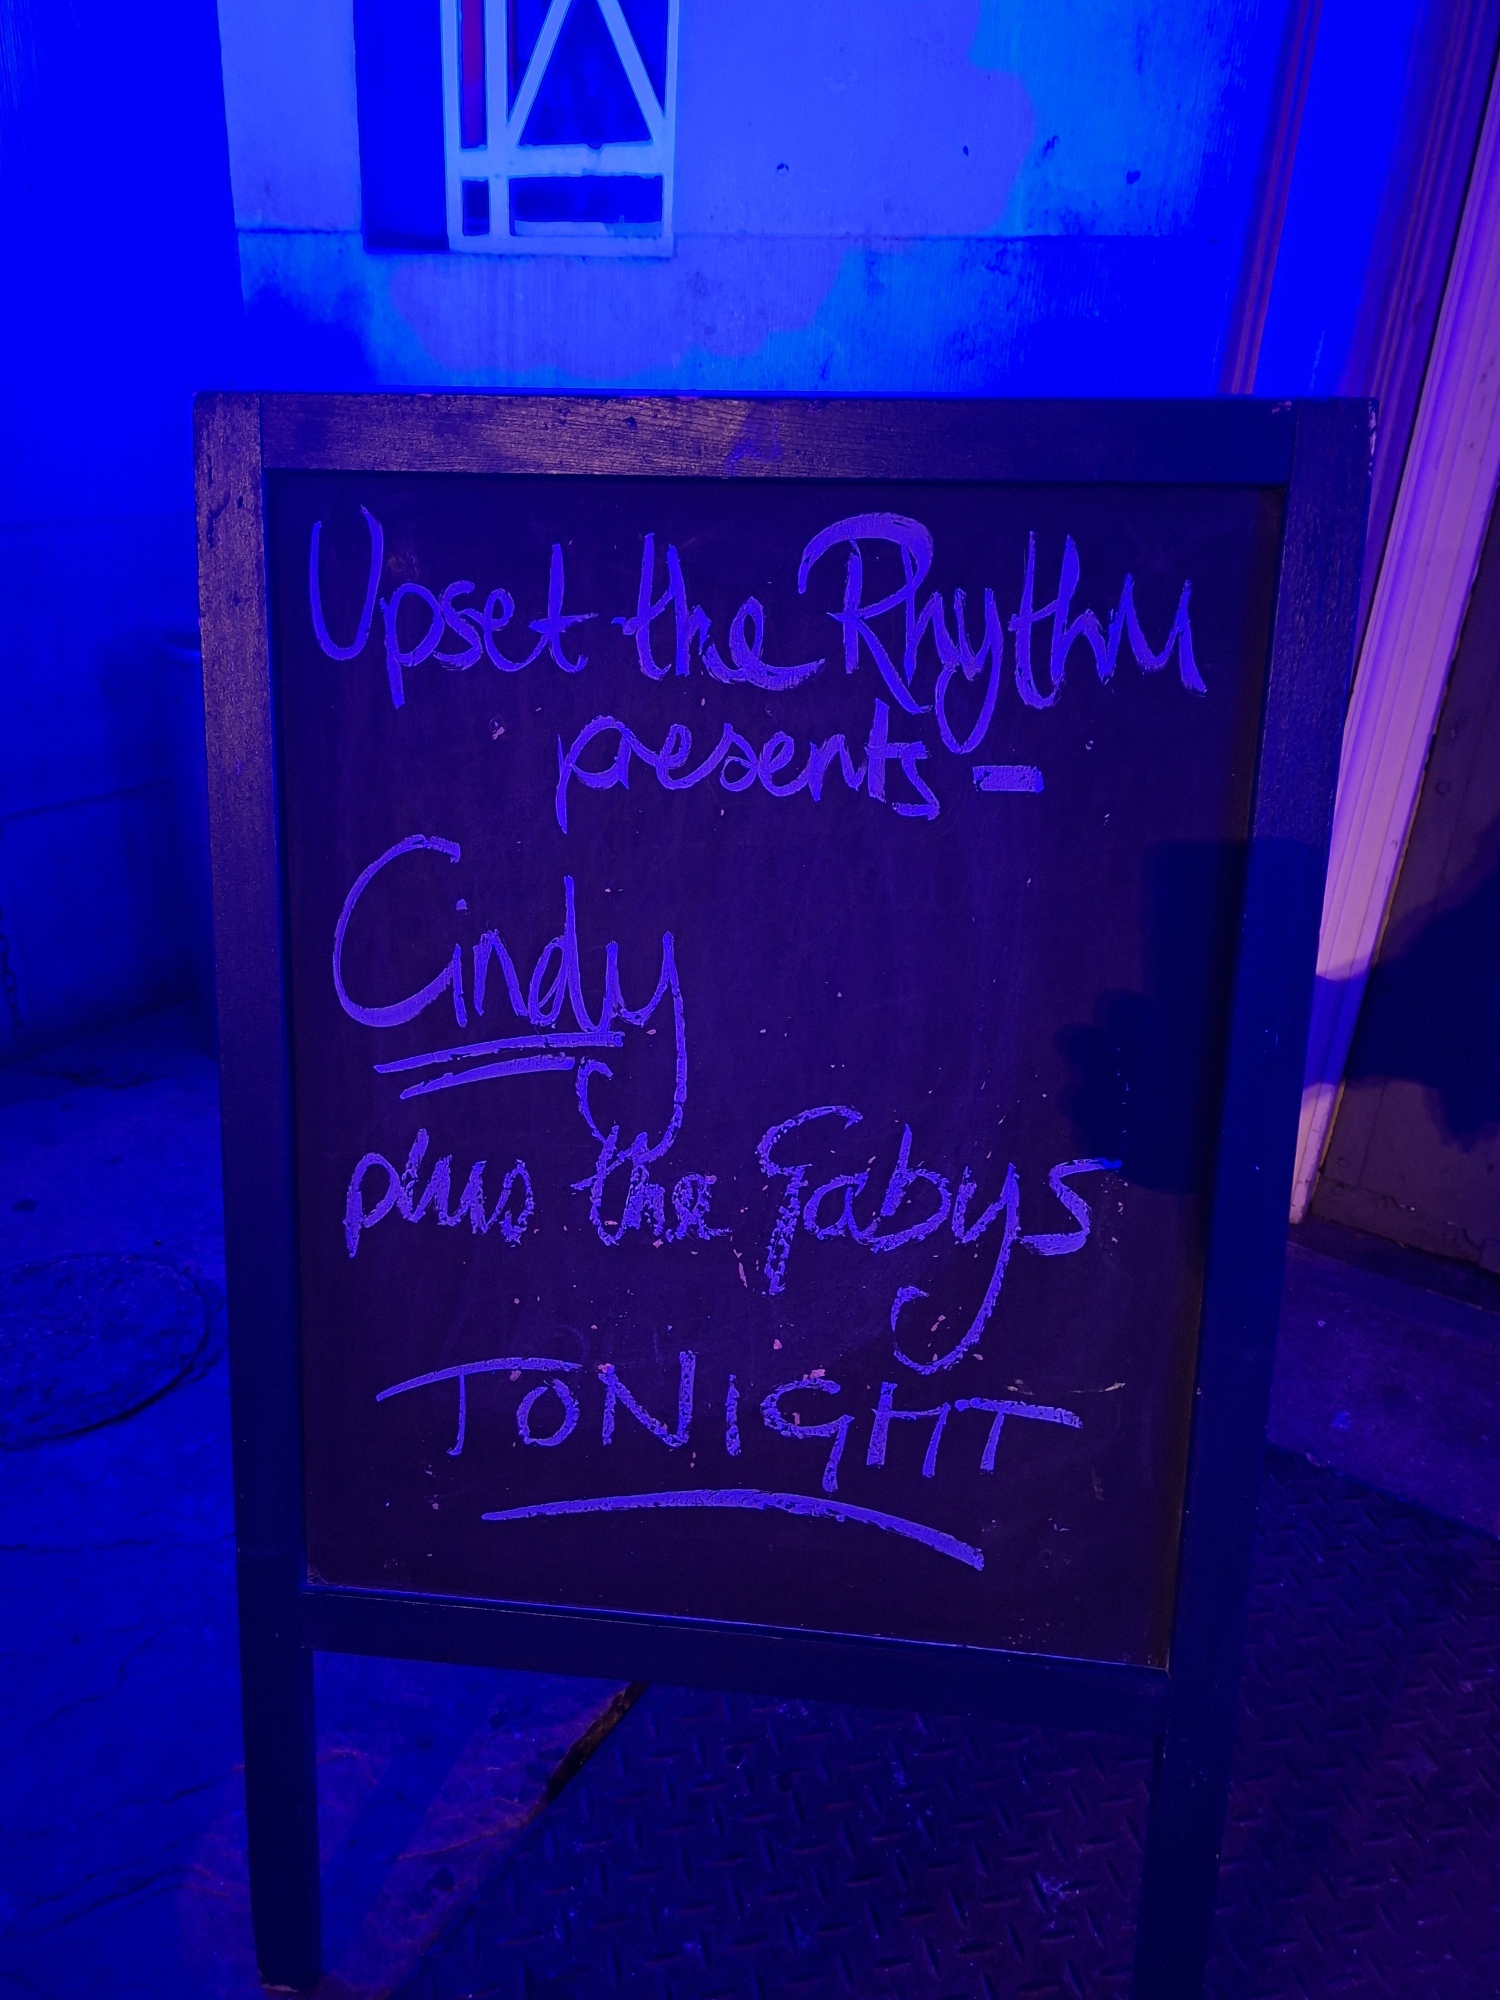 Upset the Rhythm
presents -
Cindy
plus the Gabys
TONIGHT